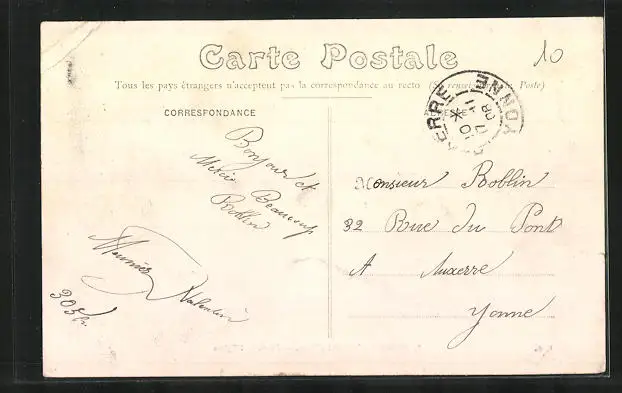 Carte Postale
10
Tous les pays étrangers n'acceptent pas la correspondance au recto (Se renseigner Poste)
CORRESPONDANCE
ADRESSE
YONNE
Bonjour et
Merci Beaucoup
Roblin
Monsieur Roblin
32 Rue du Pont
A Auxerre
Yonne
Meunier
Valentin